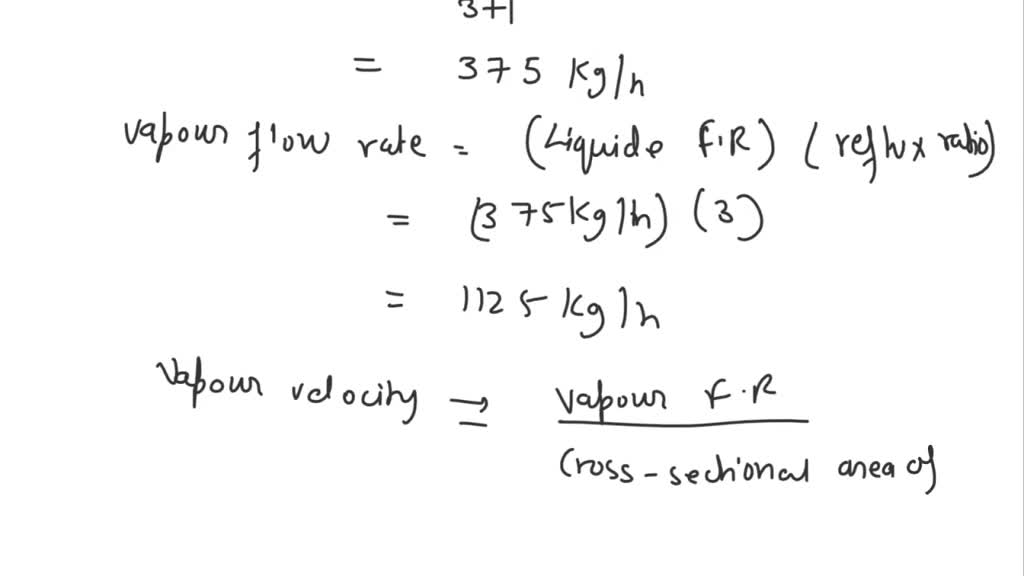 3+1
= 375 Kg/h
vapour flow rate = (Liquide F.R) (reflux ratio)
= (375Kg/h) (3)
= 1125 Kg/h
Vapour velocity ⇒ vapour F.R
Cross-sectional area of